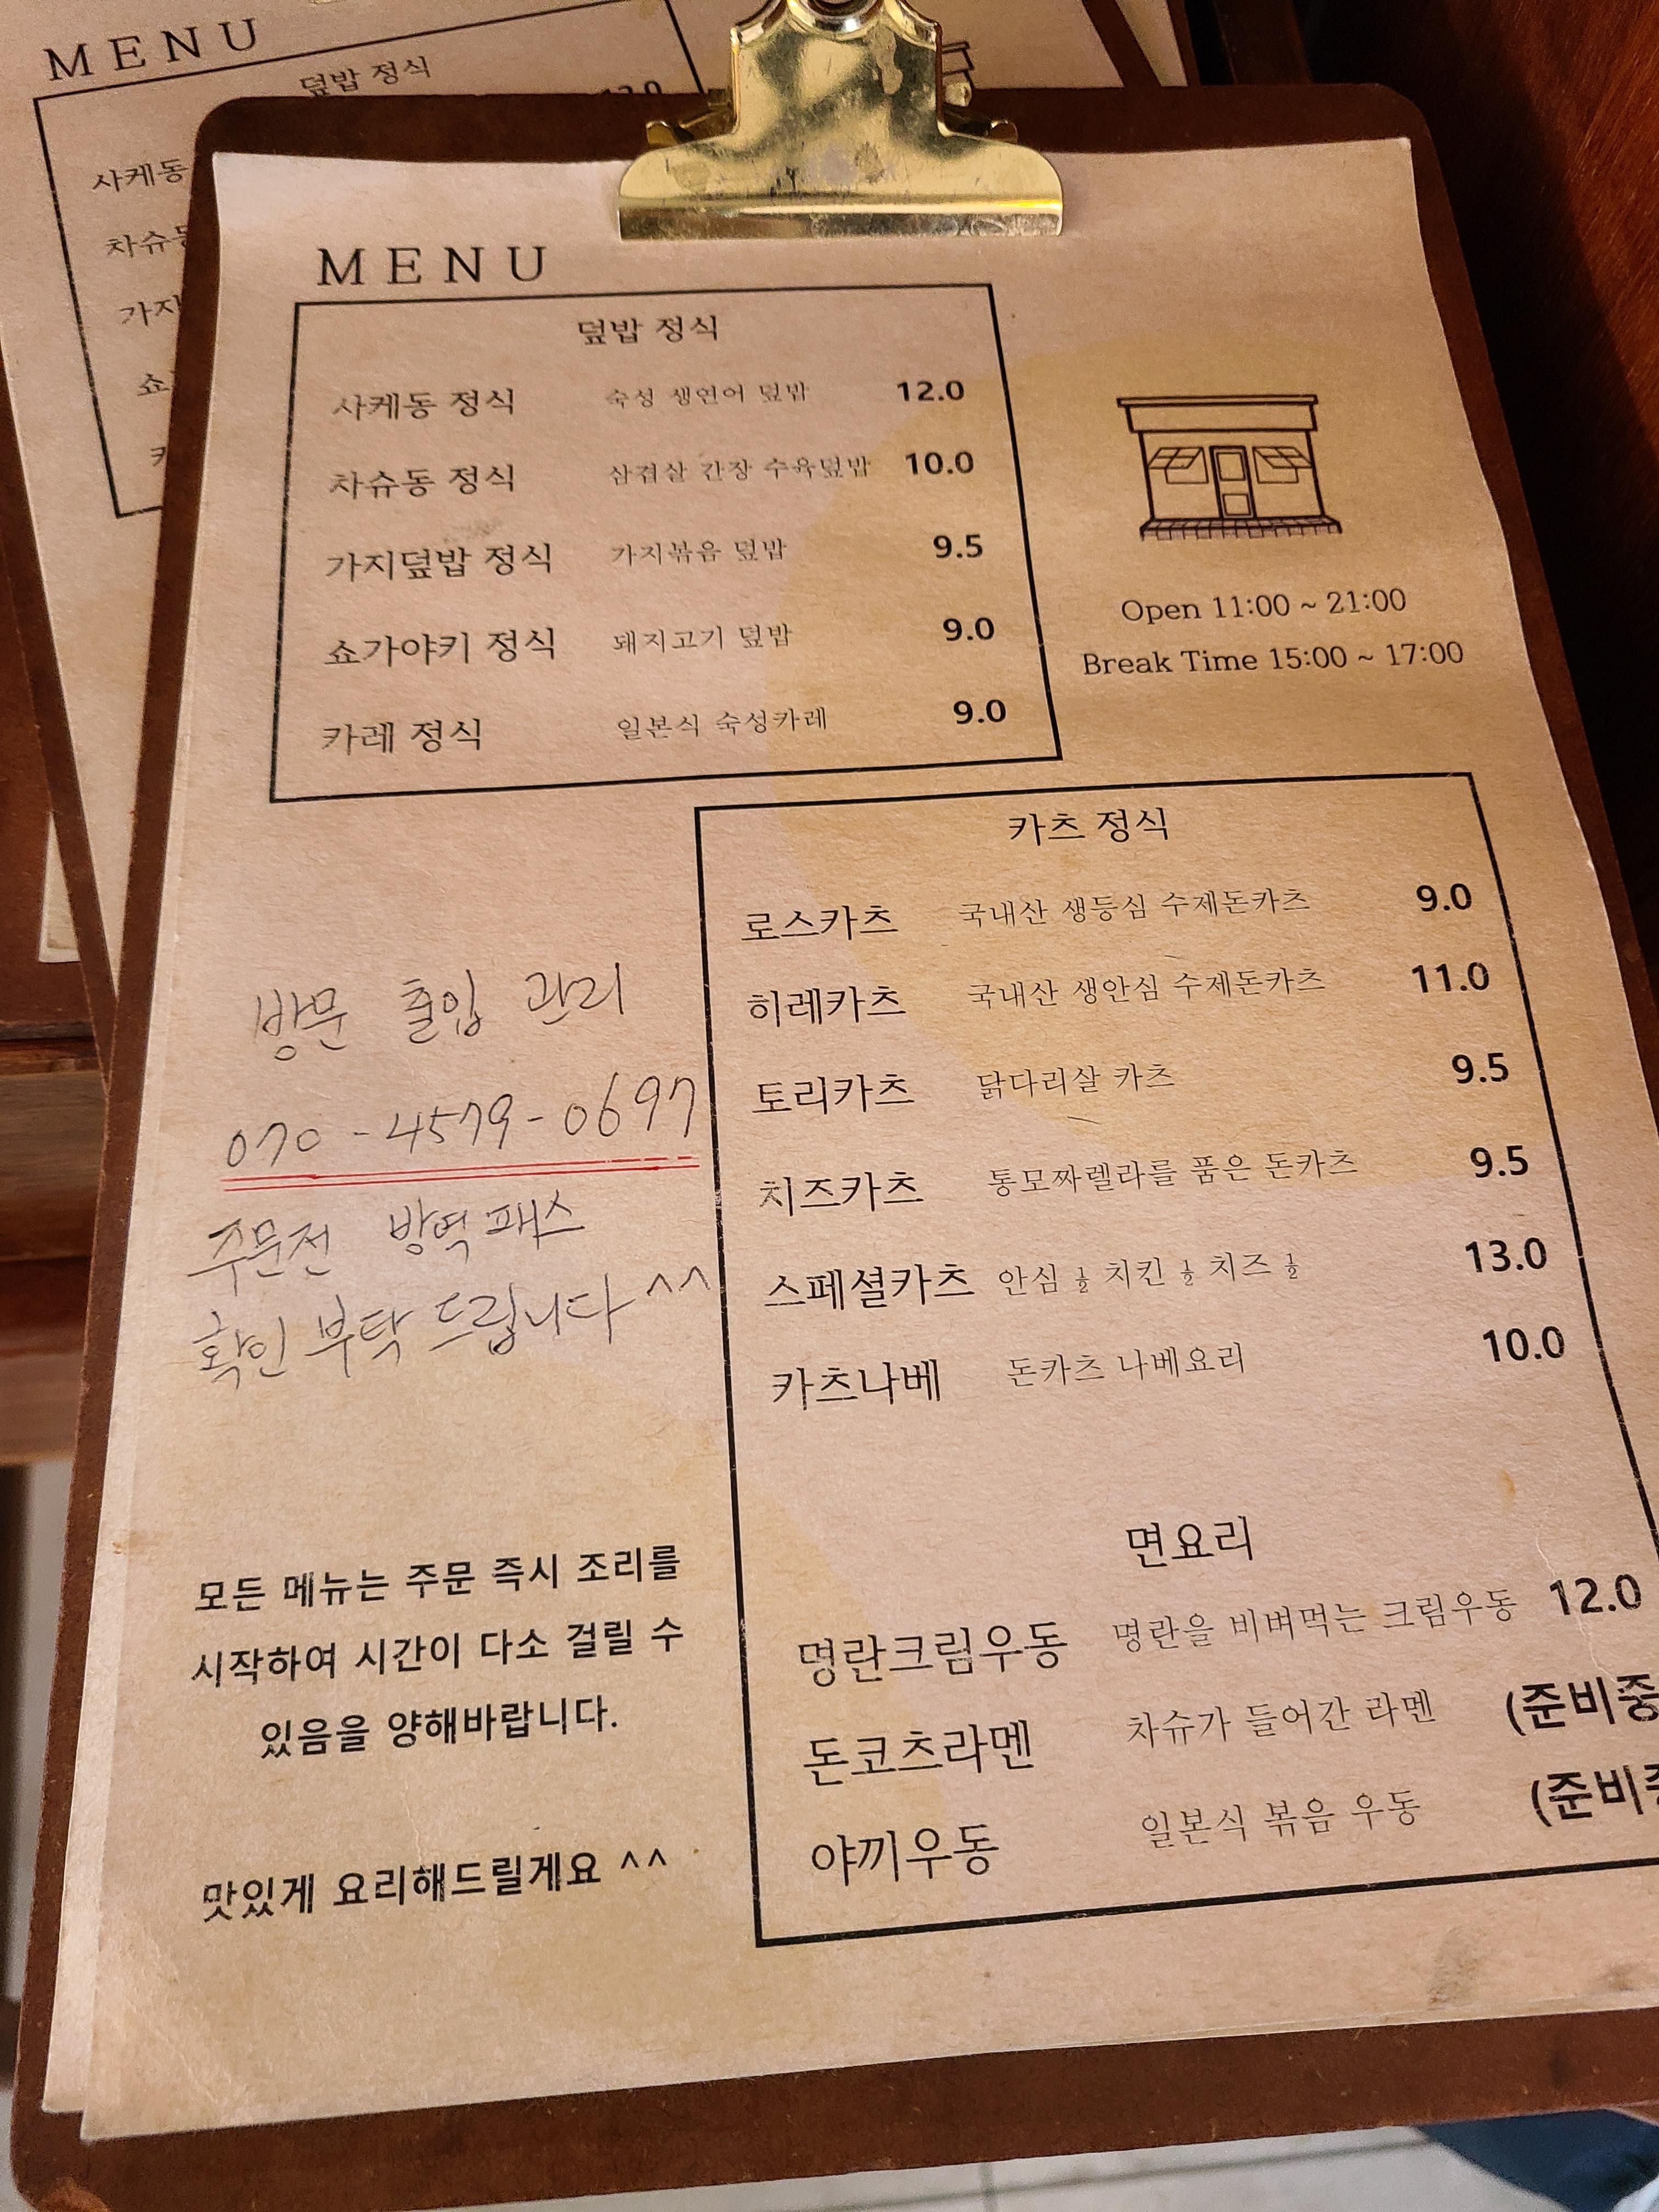 MENU
덮밥 정식
사케동
MENU
덮밥 정식
사케동 정식 숙성 생연어 덮밥 12.0
차슈동 정식 삼겹살 간장 수육덮밥 10.0
가지덮밥 정식 가지볶음 덮밥 9.5
쇼가야키 정식 돼지고기 덮밥 9.0
카레 정식 일본식 숙성카레 9.0
Open 11:00 ~ 21:00
Break Time 15:00 ~ 17:00
카츠 정식
로스카츠 국내산 생등심 수제돈카츠 9.0
히레카츠 국내산 생안심 수제돈카츠 11.0
토리카츠 닭다리살 카츠 9.5
치즈카츠 통모짜렐라를 품은 돈카츠 9.5
스페셜카츠 안심 ½ 치킨 ½ 치즈 ½ 13.0
카츠나베 돈카츠 나베요리 10.0
면요리
명란크림우동 명란을 비벼먹는 크림우동 12.0
돈코츠라멘 차슈가 들어간 라멘 (준비중
야끼우동 일본식 볶음 우동 (준비
방문 출입 관리
070-4579-0697
주문전 방역패스
확인 부탁 드립니다^^
모든 메뉴는 주문 즉시 조리를
시작하여 시간이 다소 걸릴 수
있음을 양해바랍니다.
맛있게 요리해드릴게요 ^^